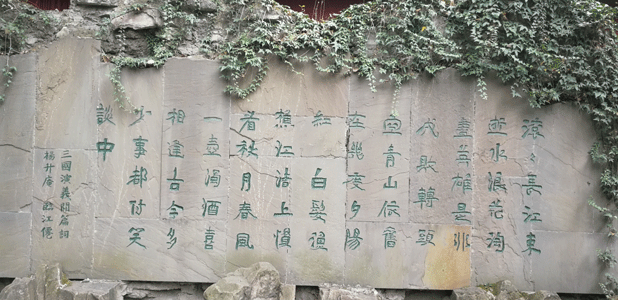 滚々長江東
逝水浪花淘
盡英雄是非
成敗轉頭
空青山依舊
在幾度夕陽
紅 白髮漁
樵江渚上慣
看秋月春風
一壺濁酒喜
相逢古今多
少事都付笑
談中
三國演義開篇詞
楊升庵 臨江僊